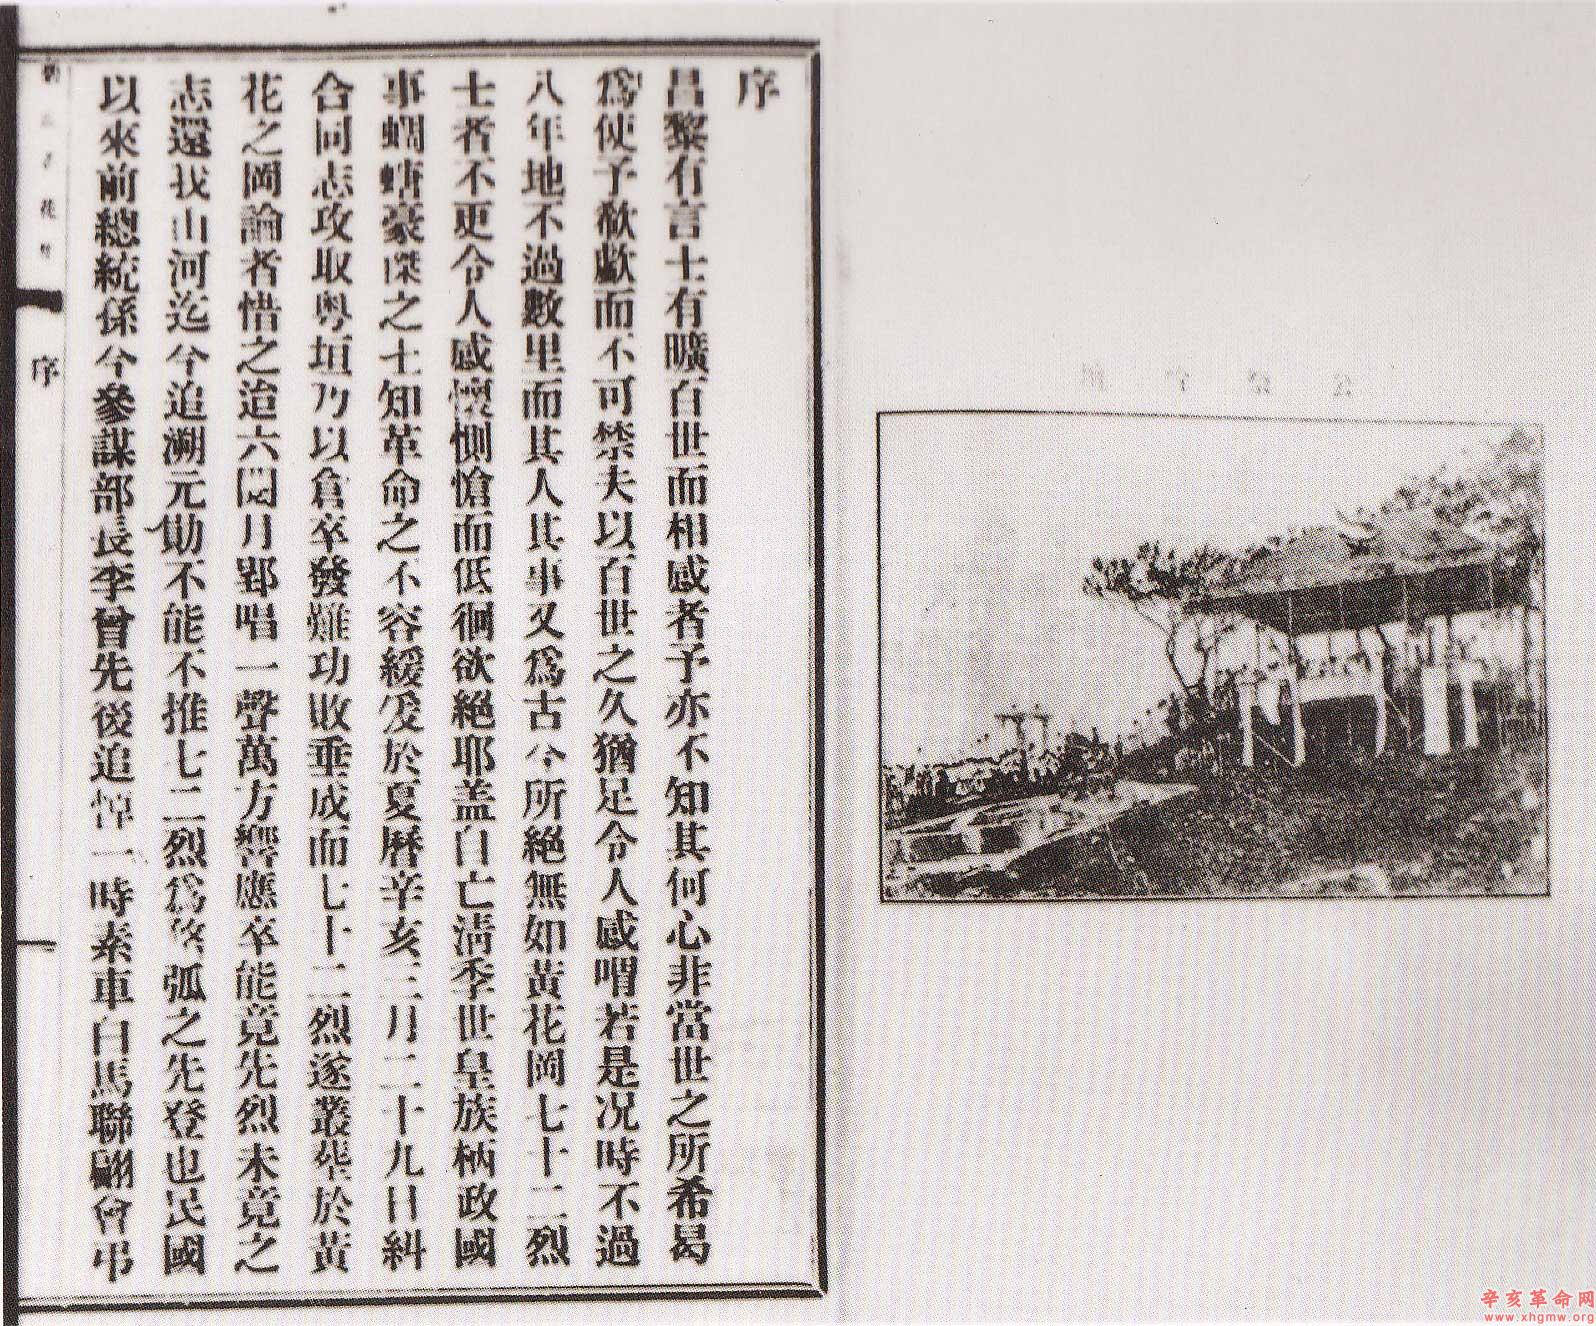 序
昌黎有言士有曠百世而相感者予亦不知其何心非當世之所希曷
爲使予歔欷而不可禁夫以百世之久猶足令人感喟若是况時不過
八年地不過數里而其人其事又爲古今所絕無如黃花岡七十二烈
士者不更令人感懷惻愴而低徊欲絕耶蓋自亡淸季世皇族柄政國
事蜩螗豪傑之士知革命之不容緩爰於夏曆辛亥三月二十九日糾
合同志攻取粤垣乃以倉卒發難功敗垂成而七十二烈遂叢葬於黃
花之岡論者惜之迨六閱月鄂唱一聲萬方響應卒能竟先烈未竟之
志還我山河迄今追溯元勛不能不推七二烈爲蝥弧之先登也民國
以來前總統係今參謀部長李曾先後追悼一時素車白馬聯翩會弔
序
辛亥革命网
www.xhgmw.org